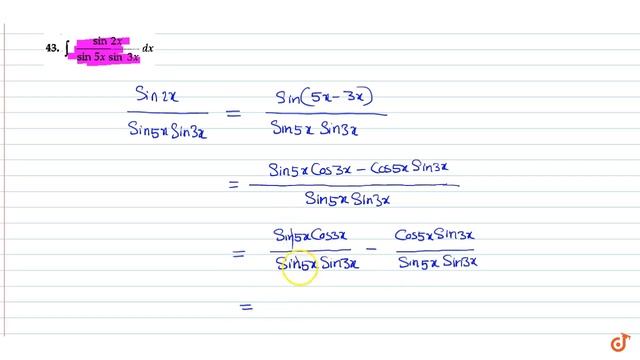 43. ∫ sin 2x / sin 5x sin 3x dx
Sin2x / Sin5x Sin3x = Sin(5x-3x) / Sin5x Sin3x
= Sin5x Cos3x - Cos5x Sin3x / Sin5x Sin3x
= Sin5x Cos3x / Sin5x Sin3x - Cos5x Sin3x / Sin5x Sin3x
=